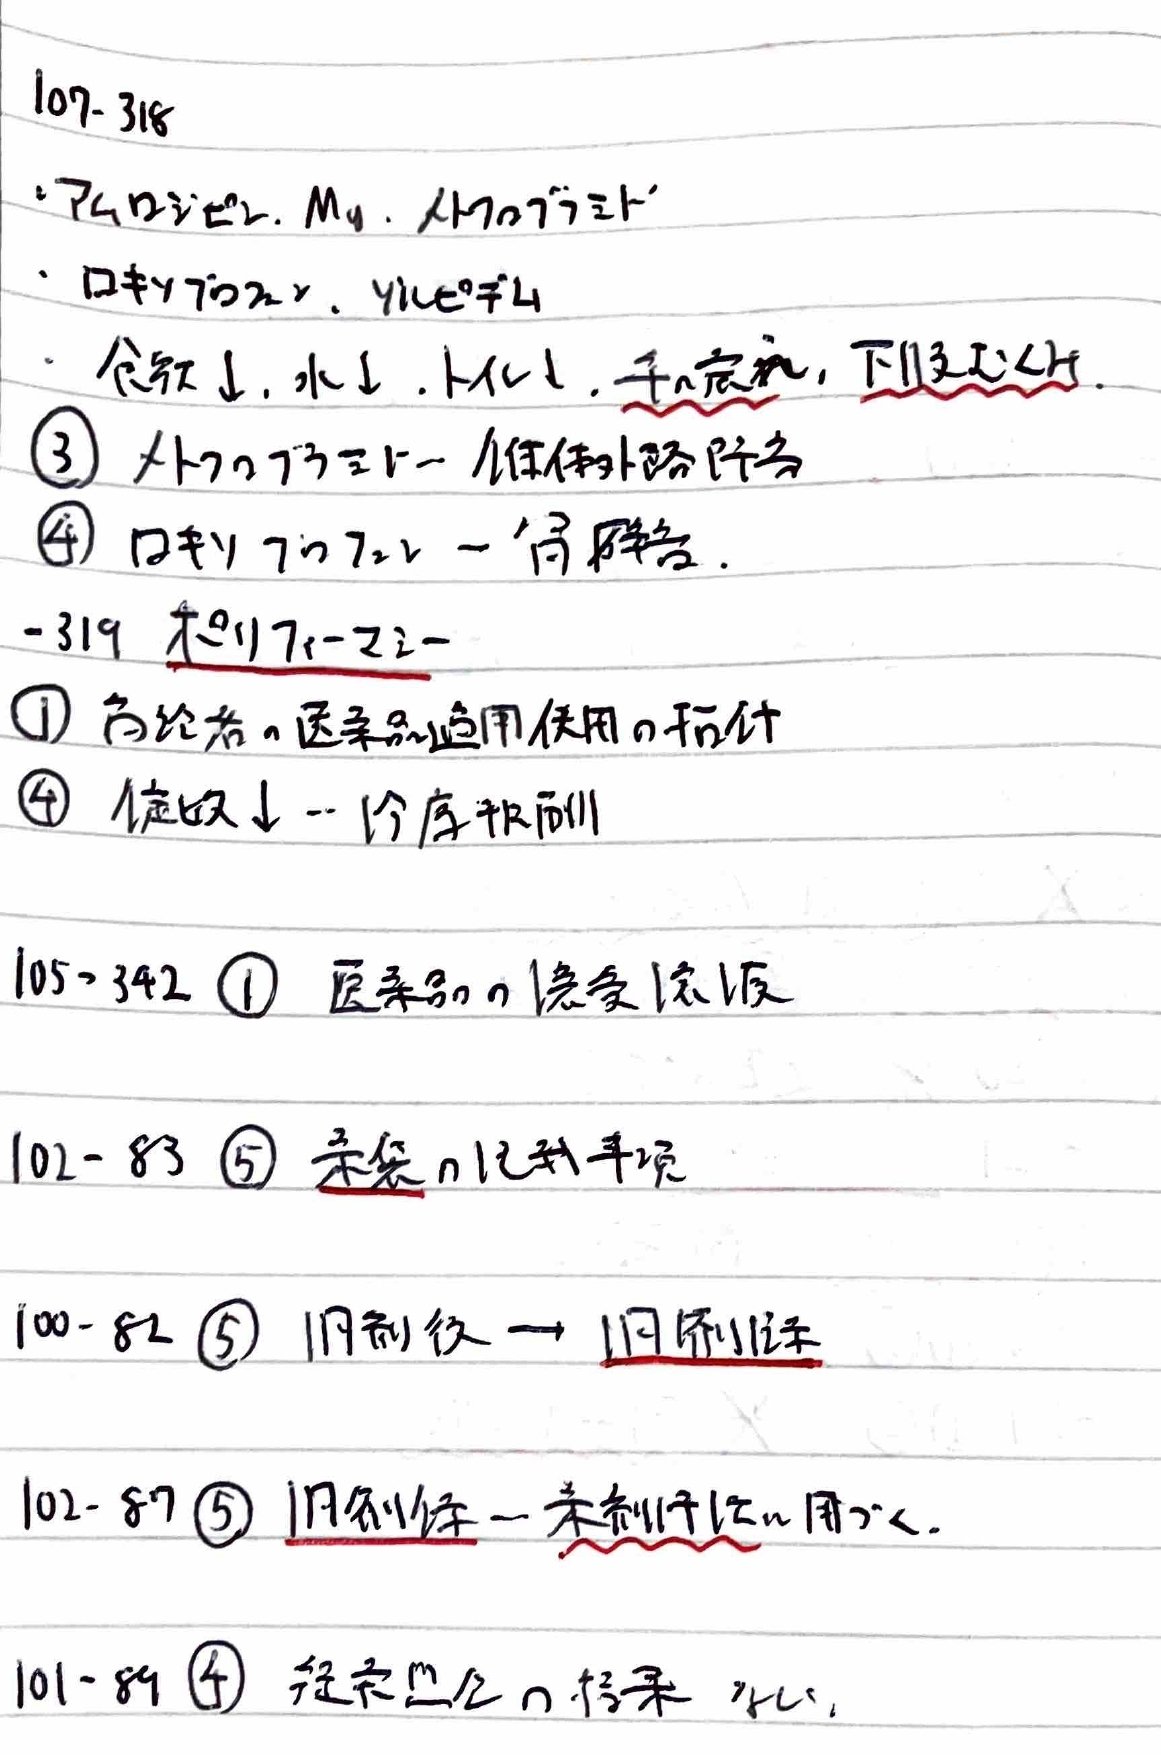 107-318
・アムロジピン. Mg. メトクロプラミド
・ロキソプロフェン. ゾルピデム
・食欲↓. 水↓. トイレ↓. 手の震れ, 下肢むくみ.
③ メトクロプラミド ー 錐体外路障害
④ ロキソプロフェン ー 胃障害.
-319 ポリファーマシー
① 高齢者の医薬品適用使用の指針
④ 調剤報酬
105-342 ① 医薬品の
102-83 ⑤ 薬袋の記載事項
100-82 ⑤ 調剤後 → 調剤録
102-87 ⑤ 調剤録 ー 薬剤師法に基づく.
101-89 ④ 疑義照会の結果 ない.